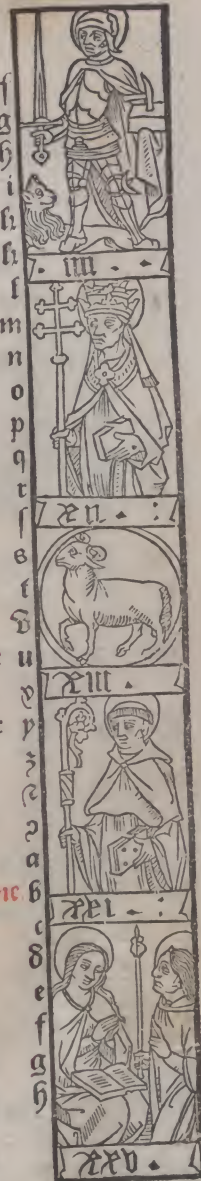 f
g
h
i
k
k
l
m
n
o
p
q
r
ſ
s
t
v
u
x
y
z
ꝛ
a
b
c
d
e
f
g
h
. iiii . .
xii . :
xiii .
xxi . :
xxv .